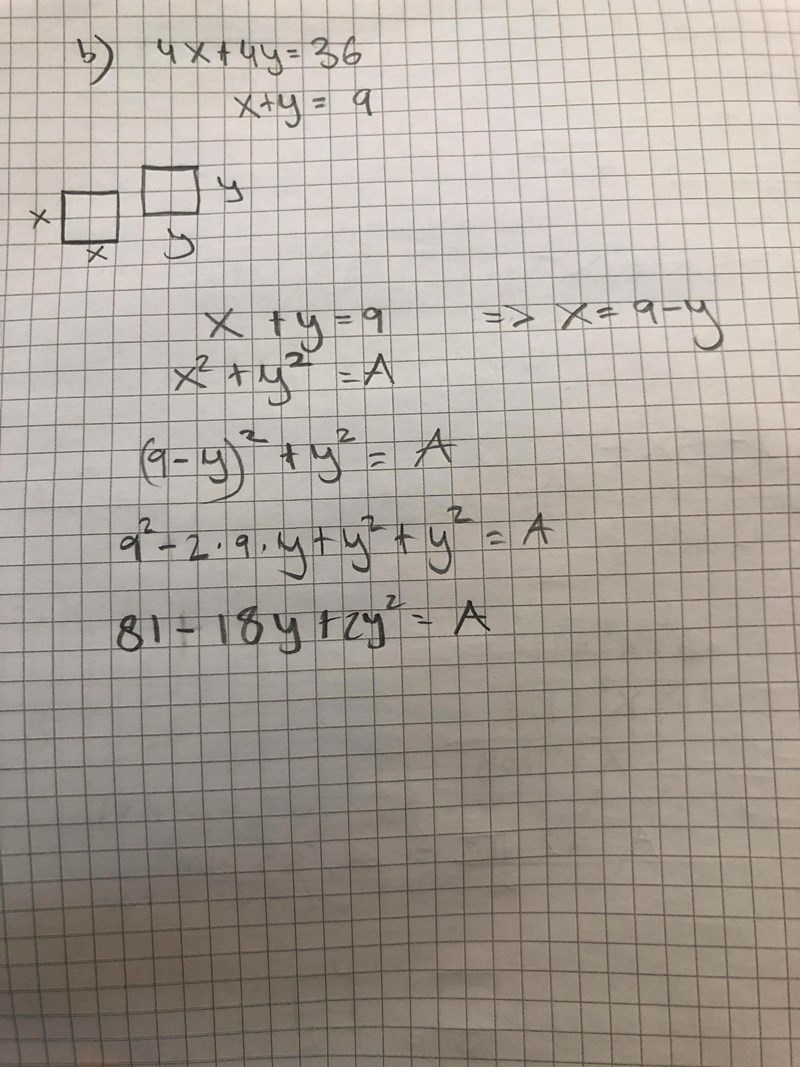 b) 4x+4y=36
x+y= 9
x
y
x
y
x + y = 9 => x = 9-y
x² + y² = A
(9-y)² + y² = A
9² - 2·9·y + y² + y² = A
81 - 18y + 2y² = A